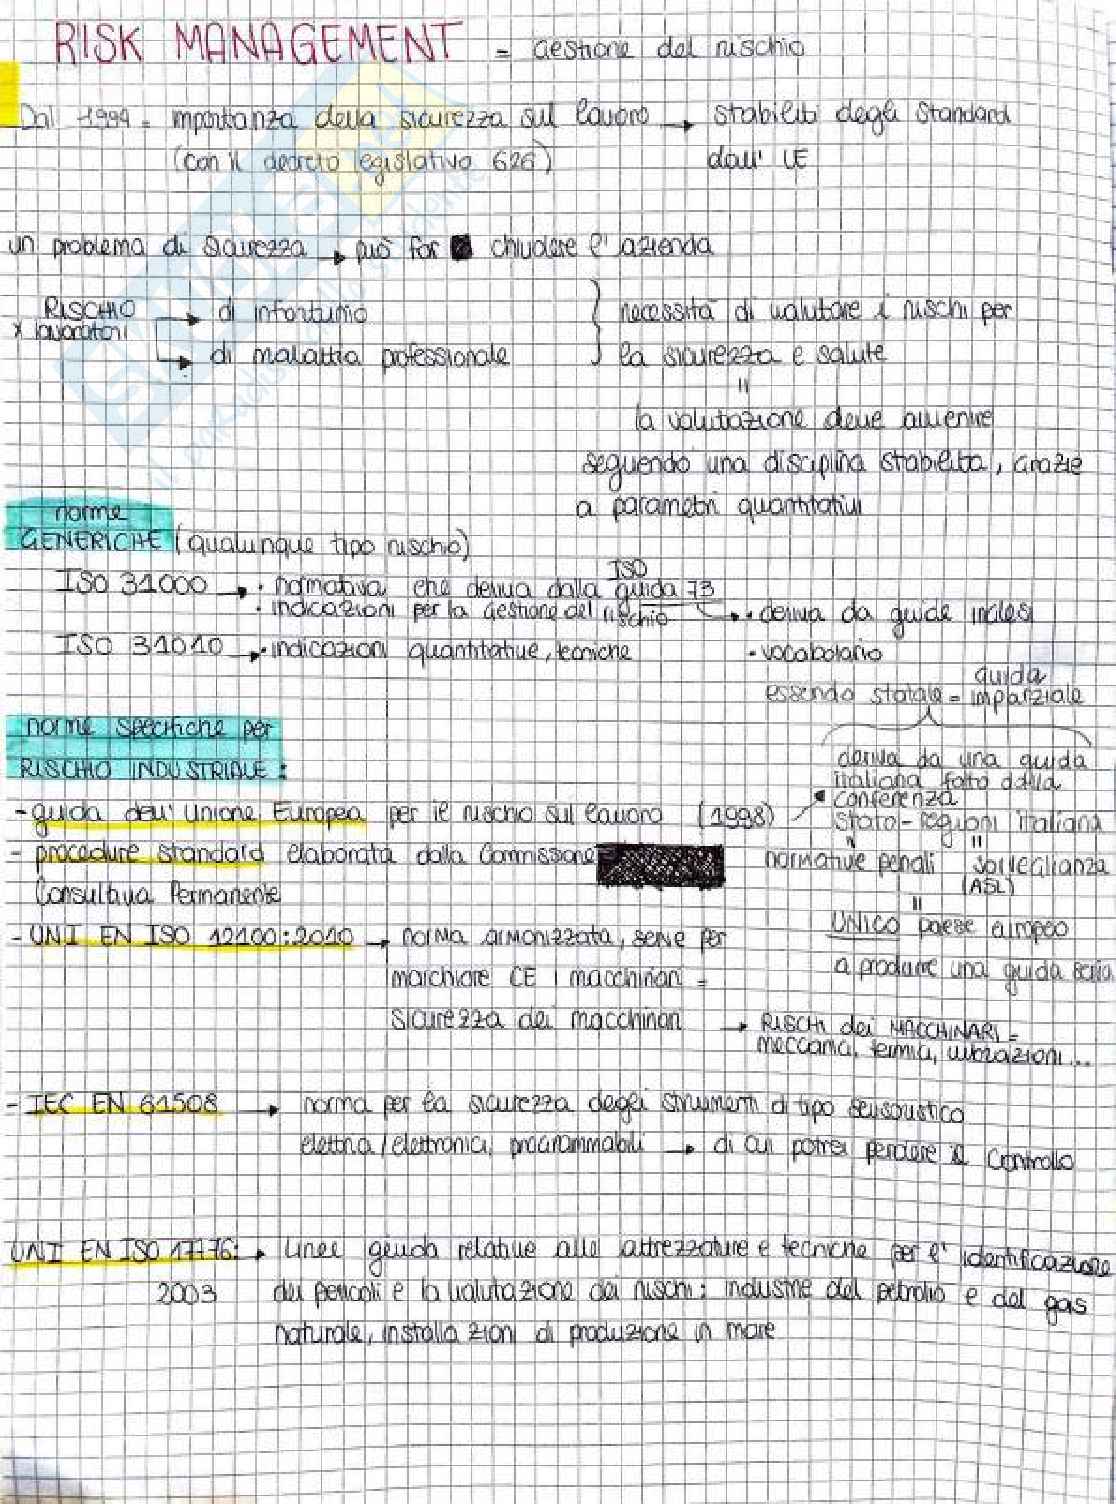 RISK MANAGEMENT = Gestione del rischio
Dal 1994 = importanza della sicurezza sul lavoro → stabiliti degli standard
(con il decreto legislativo 626) dall' UE
un problema di sicurezza → può far chiudere l'azienda
RISCHIO → di infortunio
x lavoratori → di malattia professionale
necessità di valutare i rischi per
la sicurezza e salute
=
la valutazione deve avvenire
seguendo una disciplina stabilita, grazie
a parametri quantitativi
norme
GENERICHE (qualunque tipo rischio)
ISO 31000 → • normativa che deriva dalla guida ISO 73
• indicazioni per la gestione del rischio
→ • deriva da guide inglesi
ISO 31010 → • indicazioni quantitative, tecniche
• vocabolario
essendo statale = guida imparziale
norme specifiche per
RISCHIO INDUSTRIALE:
deriva da una guida
italiana fatto dalla
conferenza
stato-regioni italiana
- guida dell'Unione Europea per il rischio sul lavoro (1998)
- procedure standard elaborata dalla Commissione
Consultiva Permanente
normative penali
sorveglianza
(ASL)
UNICO paese europeo
a produrre una guida seria
- UNI EN ISO 12100:2010 → norma armonizzata, serve per
marchiare CE i macchinari =
sicurezza dei macchinari → RISCHI dei MACCHINARI =
meccania, termia, vibrazioni...
- IEC EN 61508 → norma per la sicurezza degli strumenti di tipo
elettria/elettronici, programmabili → di cui potrei perdere il controllo
UNI EN ISO 17776: • linee geuda relative alle attrezzature e tecniche per l'identificazione
2003 dei pericoli e la valutazione dei rischi: industrie del petrolio e del gas
naturale, installazioni di produzione in mare